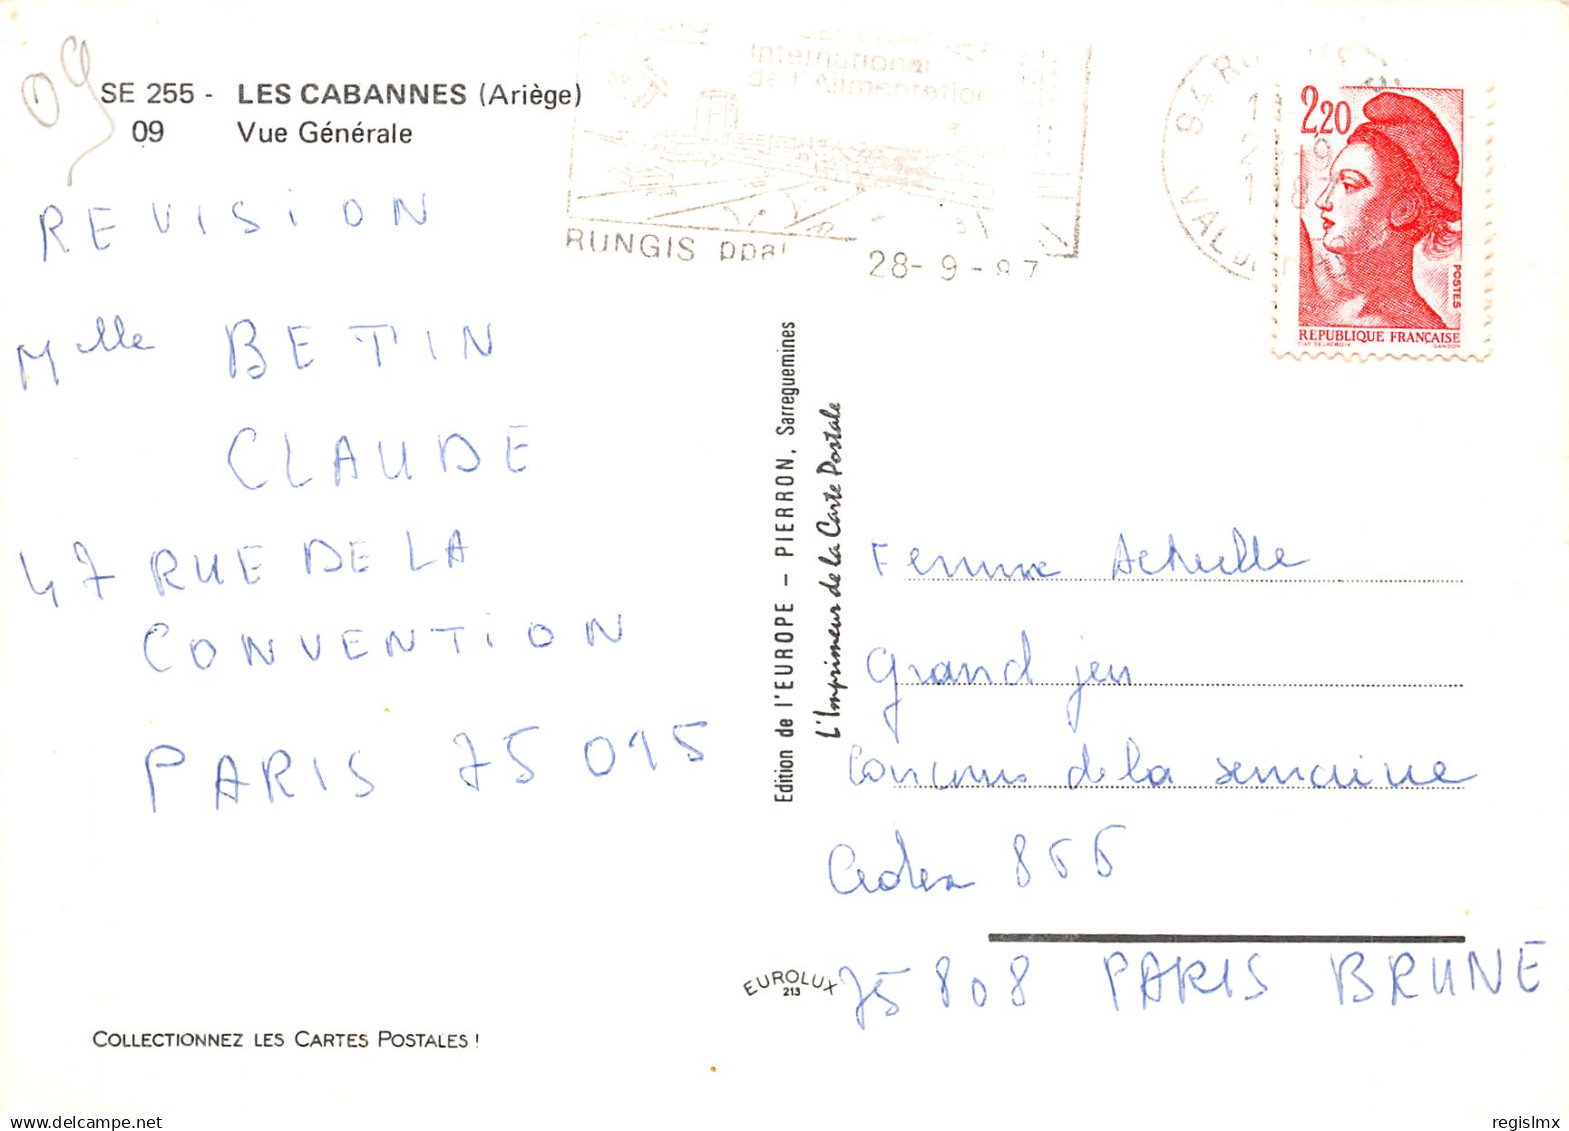 09
SE 255 - LES CABANNES (Ariège)
09 Vue Générale
International
de l'Alimentation
RUNGIS ppal
28-9-87
94 RU
VAL
2,20
POSTES
REPUBLIQUE FRANÇAISE
D'AP. DELACROIX GANDON
REVISION
Mlle BETIN
CLAUDE
47 RUE DE LA
CONVENTION
PARIS 75015
Edition de l'EUROPE - PIERRON, Sarreguemines
L'Imprimeur de la Carte Postale
Femme Actuelle
grand jeu
Concours de la semaine
Cedex 855
75808 PARIS BRUNE
EUROLUX
213
COLLECTIONNEZ LES CARTES POSTALES !
regislmx